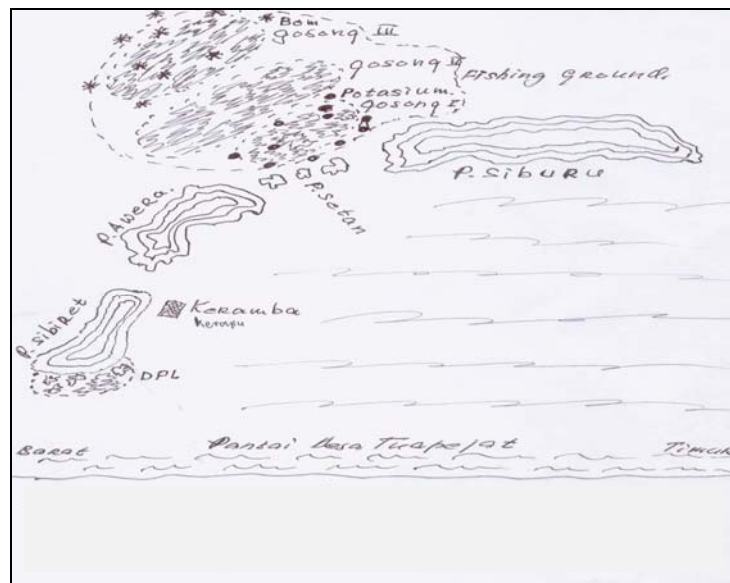 Bom
gosong III
gosong II
Fishing Ground.
Potasium.
gosong I
P. SIBURU
P. Setan
P. Awera.
P. Sibiret
Keramba
Kerapu
DPL
Barat
Pantai Desa Tuapejat
Timur